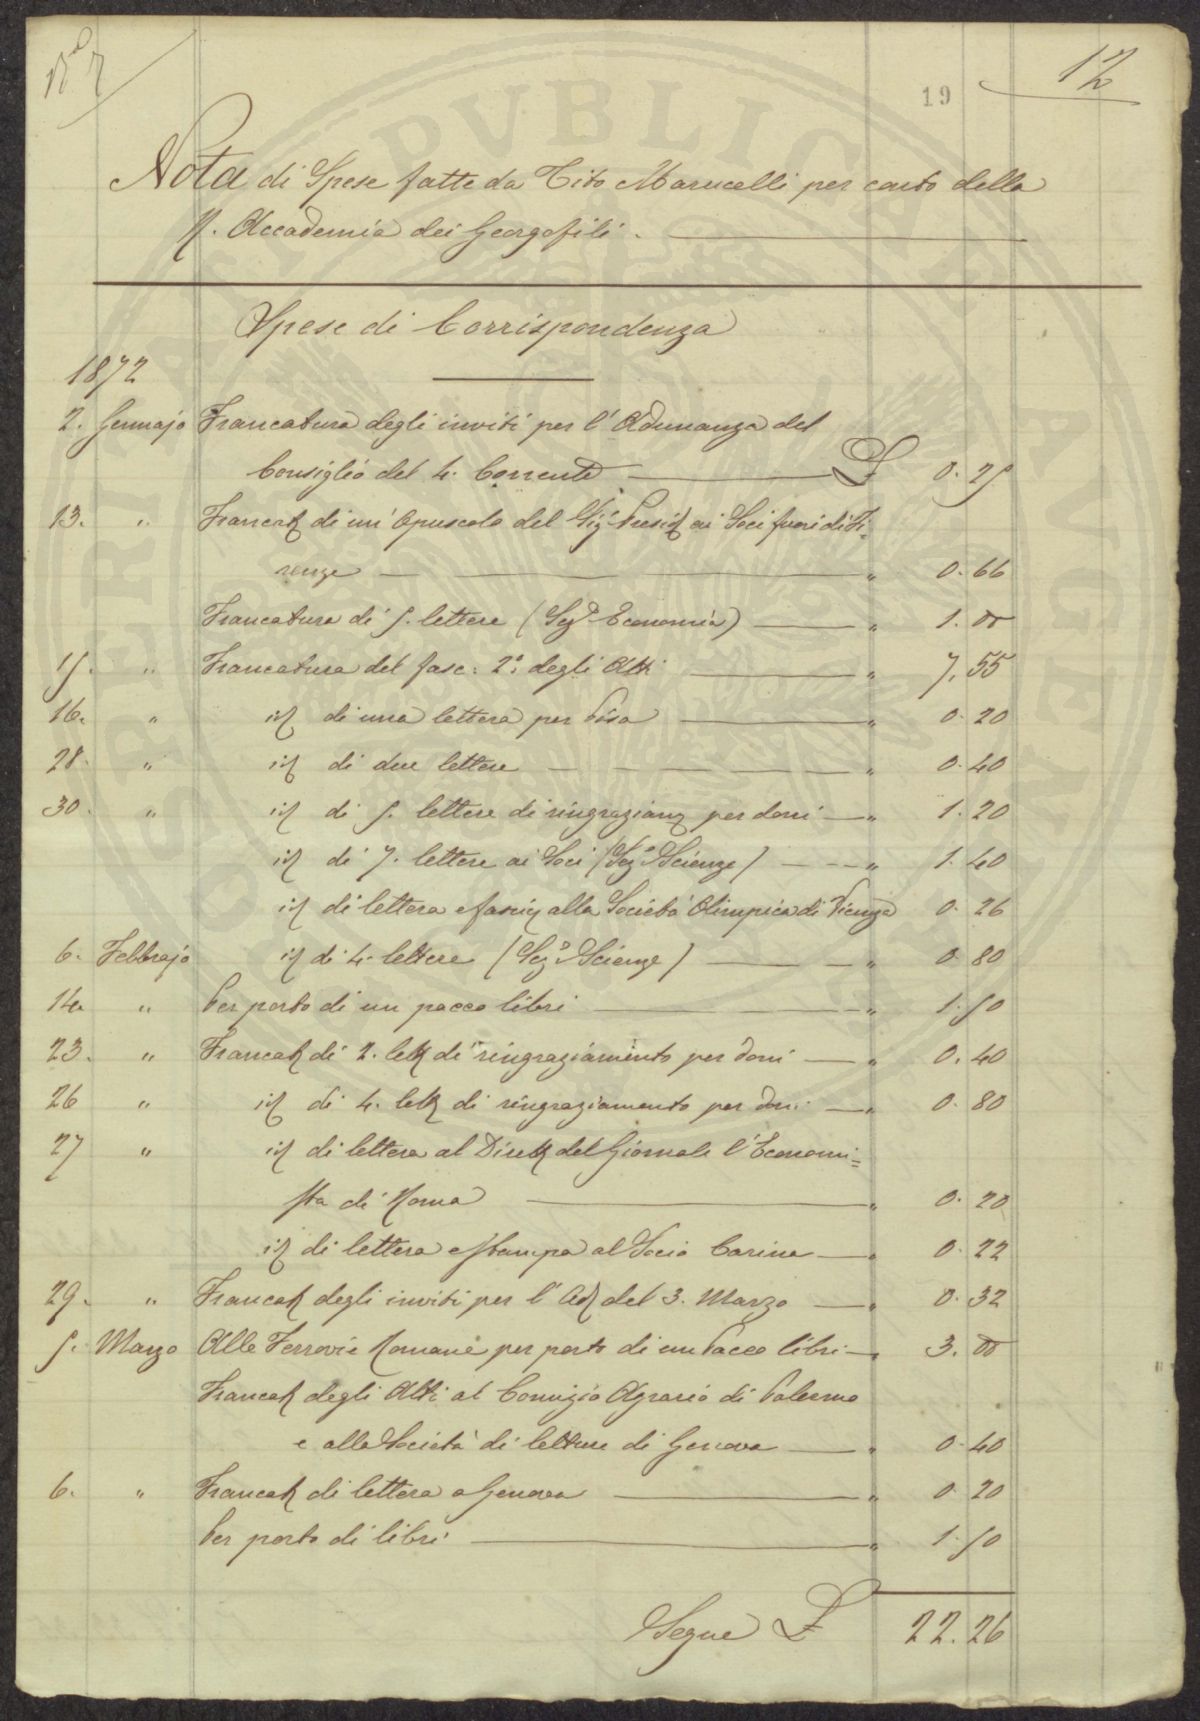 N° 7
19
12
Nota di Spese fatte da Tito Marucelli per conto della
R. Accademia dei Georgofili.
Spese di Corrispondenza
1872
2. Gennajo Francatura degli inviti per l'Adunanza del
Consiglio del 4. Corrente £ 0. 25
13. " Francat di un'Opuscolo del Sig. Presid ai Soci fuori di Fi=
renze " 0. 66
Francatura di 5. lettere (Sez.e Economia) " 1. 00
15. " Francatura del fasc: 2.° degli Atti " 7. 55
16. " id di una lettera per Pisa " 0. 20
28. " id di due lettere " 0. 40
30. " id di 5. lettere di ringraziam per doni " 1. 20
id di 7. lettere ai Soci (Sez.e Scienze) " 1. 40
id di lettera e fascic alla Società Olimpica di Vicenza 0. 26
6. Febbrajo id di 4. lettere (Sez.e Scienze) " 0. 80
14. " Per porto di un pacco libri " 1. 50
23. " Francat di 2. lett di ringraziamento per doni " 0. 40
26 " id di 4. lett di ringraziamento per doni " 0. 80
27 " id di lettera al Dirett del Giornale l'Economi=
sta di Roma " 0. 20
id di lettera e stampa al Socio Carina " 0. 22
29. " Francat degli inviti per l'Ad del 3. Marzo " 0. 32
5. Marzo Alle Ferrovie Romane per porto di un Pacco libri " 3. 00
Francat degli Atti al Comizio Agrario di Palermo
e alla Società di letture di Genova " 0. 40
6. " Francat di lettera a Genova " 0. 20
Per porto di libri " 1. 50
Segue £ 22. 26